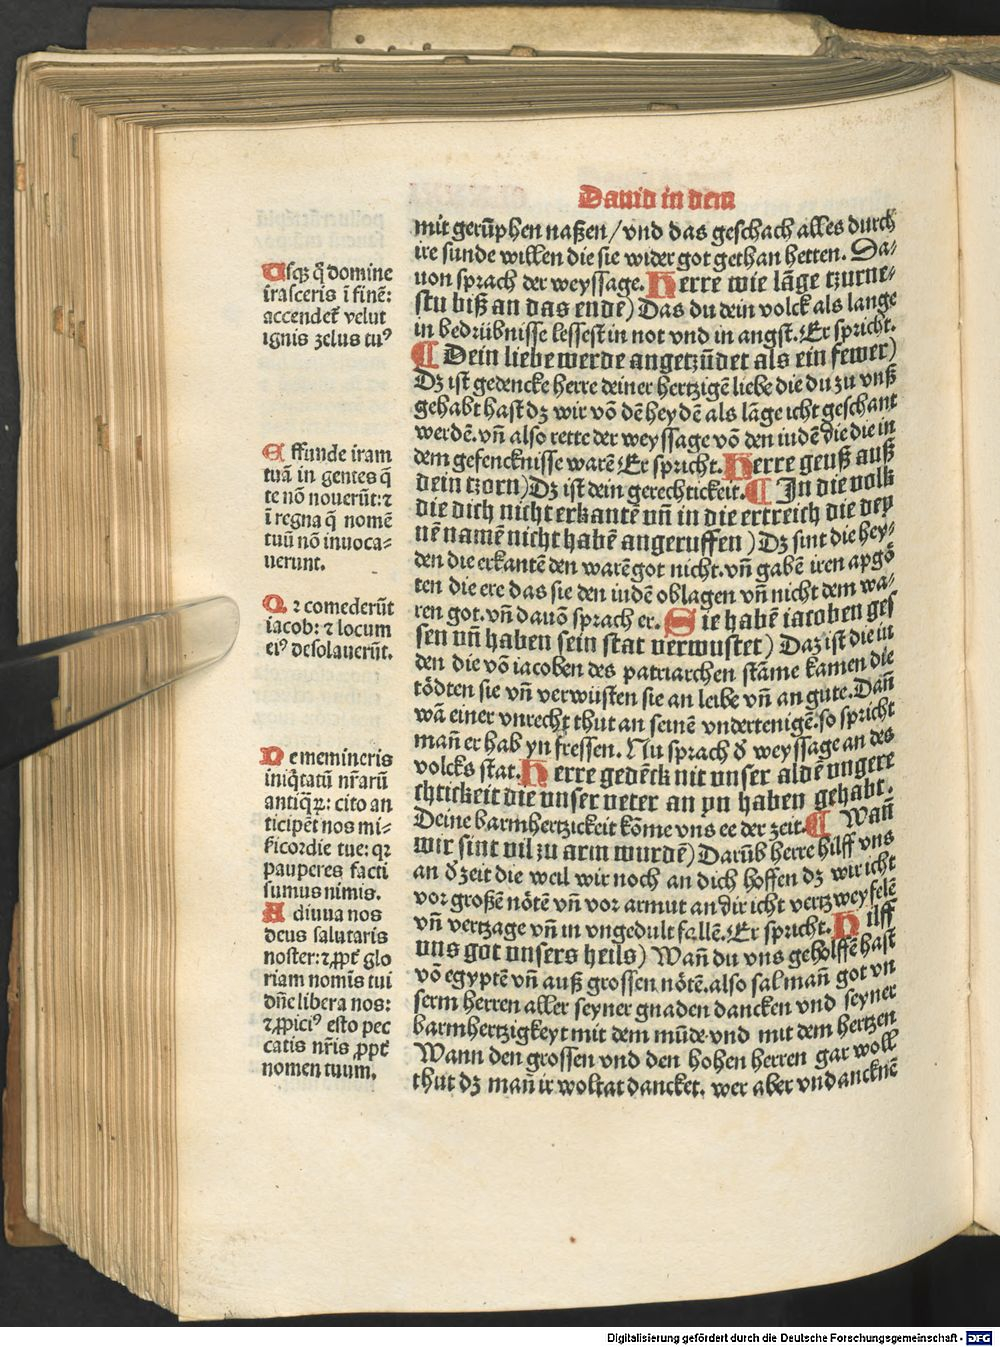 Dauid in dem
Usqꝫ q̃ domine
irasceris ĩ finẽ:
accendet̃ velut
ignis zelus tuꝰ
Effunde iram
tuã in gentes q̃
te nõ nouerũt: ⁊
ĩ regna q̃ nomẽ
tuũ nõ inuoca⸗
uerunt.
Qꝛ comederũt
iacob: ⁊ locum
eiꝰ desolauerũt.
Ne memineris
iniq̃tatũ nr̃arũ
antiq̃ꝝ: cito an
ticipẽt nos mi⸗
sicordie tue: qꝛ
pauperes facti
sumus nimis.
Adiuua nos
deus salutaris
noster: ⁊ ꝓpt̃ glo
riam nomĩs tui
dñe libera nos:
⁊ ꝓpiciꝰ esto pec
catis nr̃is ꝓpt̃
nomen tuum.
mit gerũphen naßen / vnd das geschach alles durch
ire sunde willen die sie wider got gethan hetten. Da⸗
uon sprach der weyssage. Herre wie lãge tzurne⸗
stu biß an das ende) Das du dein volck als lange
in bedrübnisse lessest in not vnd in angst. Er spricht.
¶ Dein liebe werde angetzũdet als ein fewer)
Dz ist gedencke herre deiner hertzigẽ liebe die du zu vnß
gehabt hast dz wir võ dẽ heydẽ als lãge icht geschant
werdẽ. vñ also rette der weyssage võ den iudẽ die die in
dem gefencknisse warẽ Er spricht. Herre geuß auß
dein tzorn) Dz ist dein gerechtickeit. ¶ In die volk
die dich nicht erkantẽ vñ in die ertreich die dey
nẽ namẽ nicht habẽ angeruffen) Dz sint die hey⸗
den die erkantẽ den warẽ got nicht. vñ gabẽ iren apgõ
ten die ere das sie den iudẽ oblagen vñ nicht dem wa⸗
ren got. vñ dauõ sprach er. Sie habẽ iacoben ges
sen vñ haben sein stat verwustet) Daz ist die iu
den die võ iacoben des patriarchen stãme kamen die
tödten sie vñ verwüsten sie an leibe vñ an gute. Dañ
wã einer vnrecht thut an seinẽ vndertenigẽ. so spricht
mañ er hab yn fressen. Nu sprach ð weyssage an des
volcks stat. Herre gedẽck nit vnser aldẽ vngere
chtickeit die vnser veter an yn haben gehabt.
Deine barmhertzickeit kõme vns ee der zeit. ¶ Wañ
wir sint vil zu arm wurdẽ) Darũb herre hilff vns
an ð zeit die weil wir noch an dich hoffen dz wir icht
vor großẽ nötẽ vñ vor armut an dir icht vertzweyfelẽ
vñ vertzage vñ in vngedult fallẽ. Er spricht. Hilff
vns got vnsers heils) Wañ du vns geholffẽ hast
võ egyptẽ vñ auß grossen nötẽ. also sal mañ got vn
serm herren aller seyner gnaden dancken vnd seyner
barmhertzigkeyt mit dem mũde vnd mit dem hertzen
Wann den grossen vnd den hohen herren gar woll
thut dz mañ ir woltat dancket. wer aber vndancknẽ
Digitalisierung gefördert durch die Deutsche Forschungsgemeinschaft - DFG